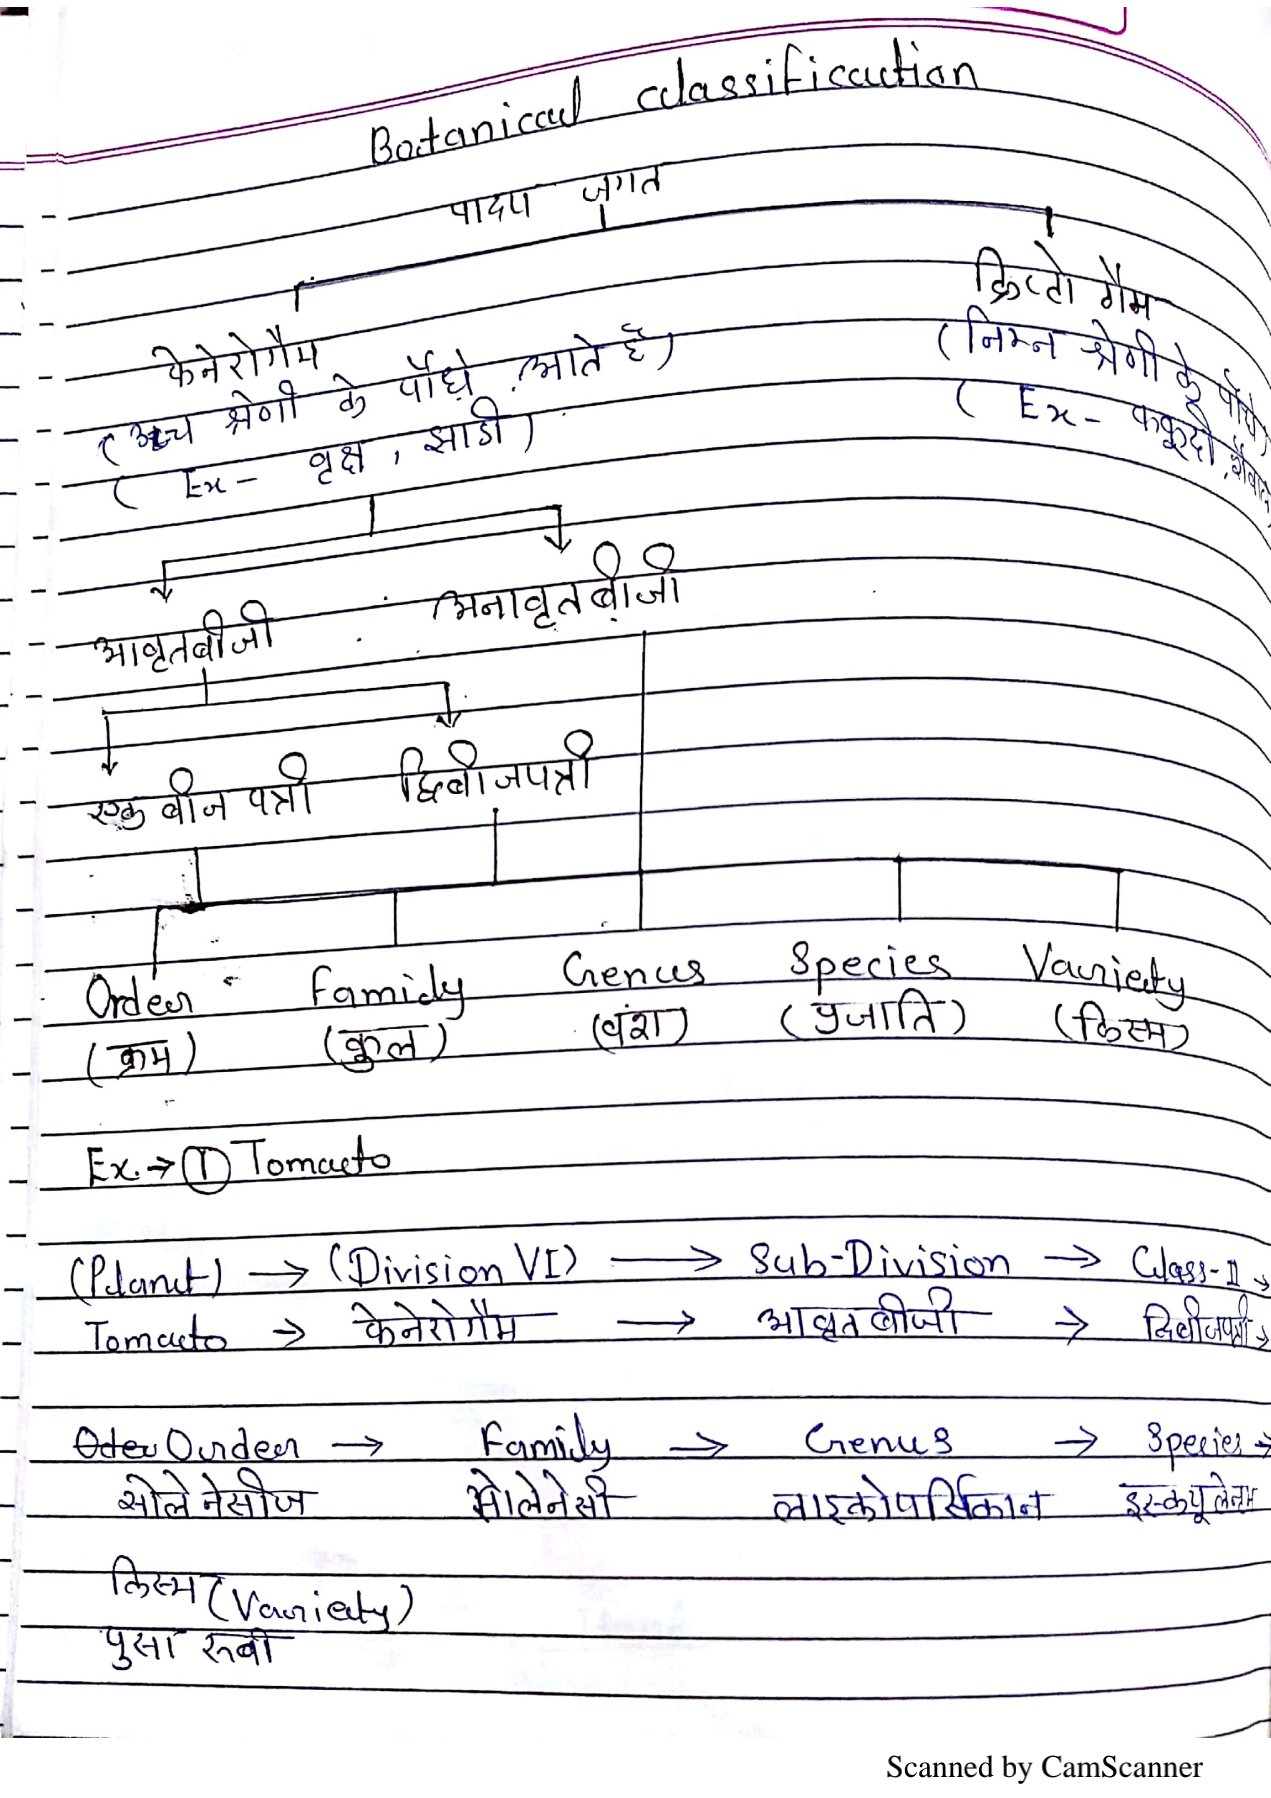 Botanical classification
पादप जगत
फेनेरोगैम
क्रिप्टो गैम
(उच्च श्रेणी के पौधे आते है)
(निम्न श्रेणी के पौधे)
( Ex - वृक्ष , झाडी )
( Ex - फफूदी, शैवाल
आवृतबीजी
अनावृतबीजी
एक बीज पत्री
द्विबीजपत्री
Order Family Genus Species Variety
(क्रम) (कुल) (वंश) (प्रजाति) (किस्म)
Ex. → ① Tomato
(Plant) → (Division VI) → Sub-Division → Class-II →
Tomato → फेनेरोगैम → आवृतबीजी → द्विबीजपत्री →
Order → Family → Genus → Species →
सोलेनेसीज सोलेनेसी लाइकोपर्सिकान इस्क्यूलेन्टम
किस्म (Variety)
पुसा रूबी
Scanned by CamScanner